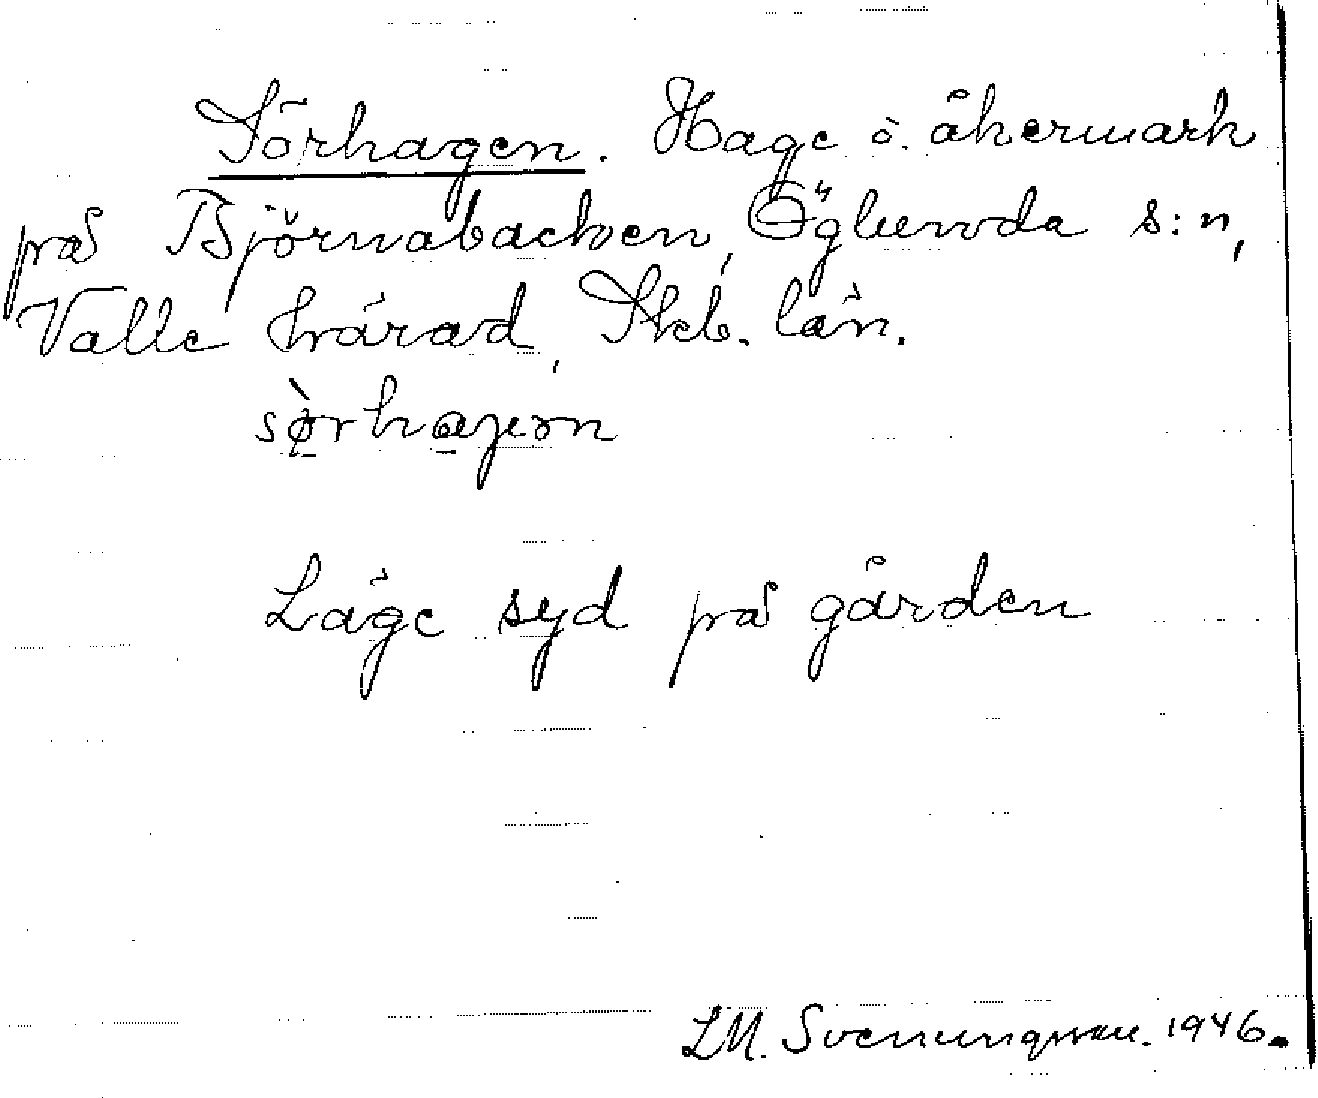 Sörhagen. Hage o. åkermark
på Björnabacken, Öglunda s:n,
Valle härad, Skb. län.
Läge syd på gården
LM. Svenungsson. 1946.